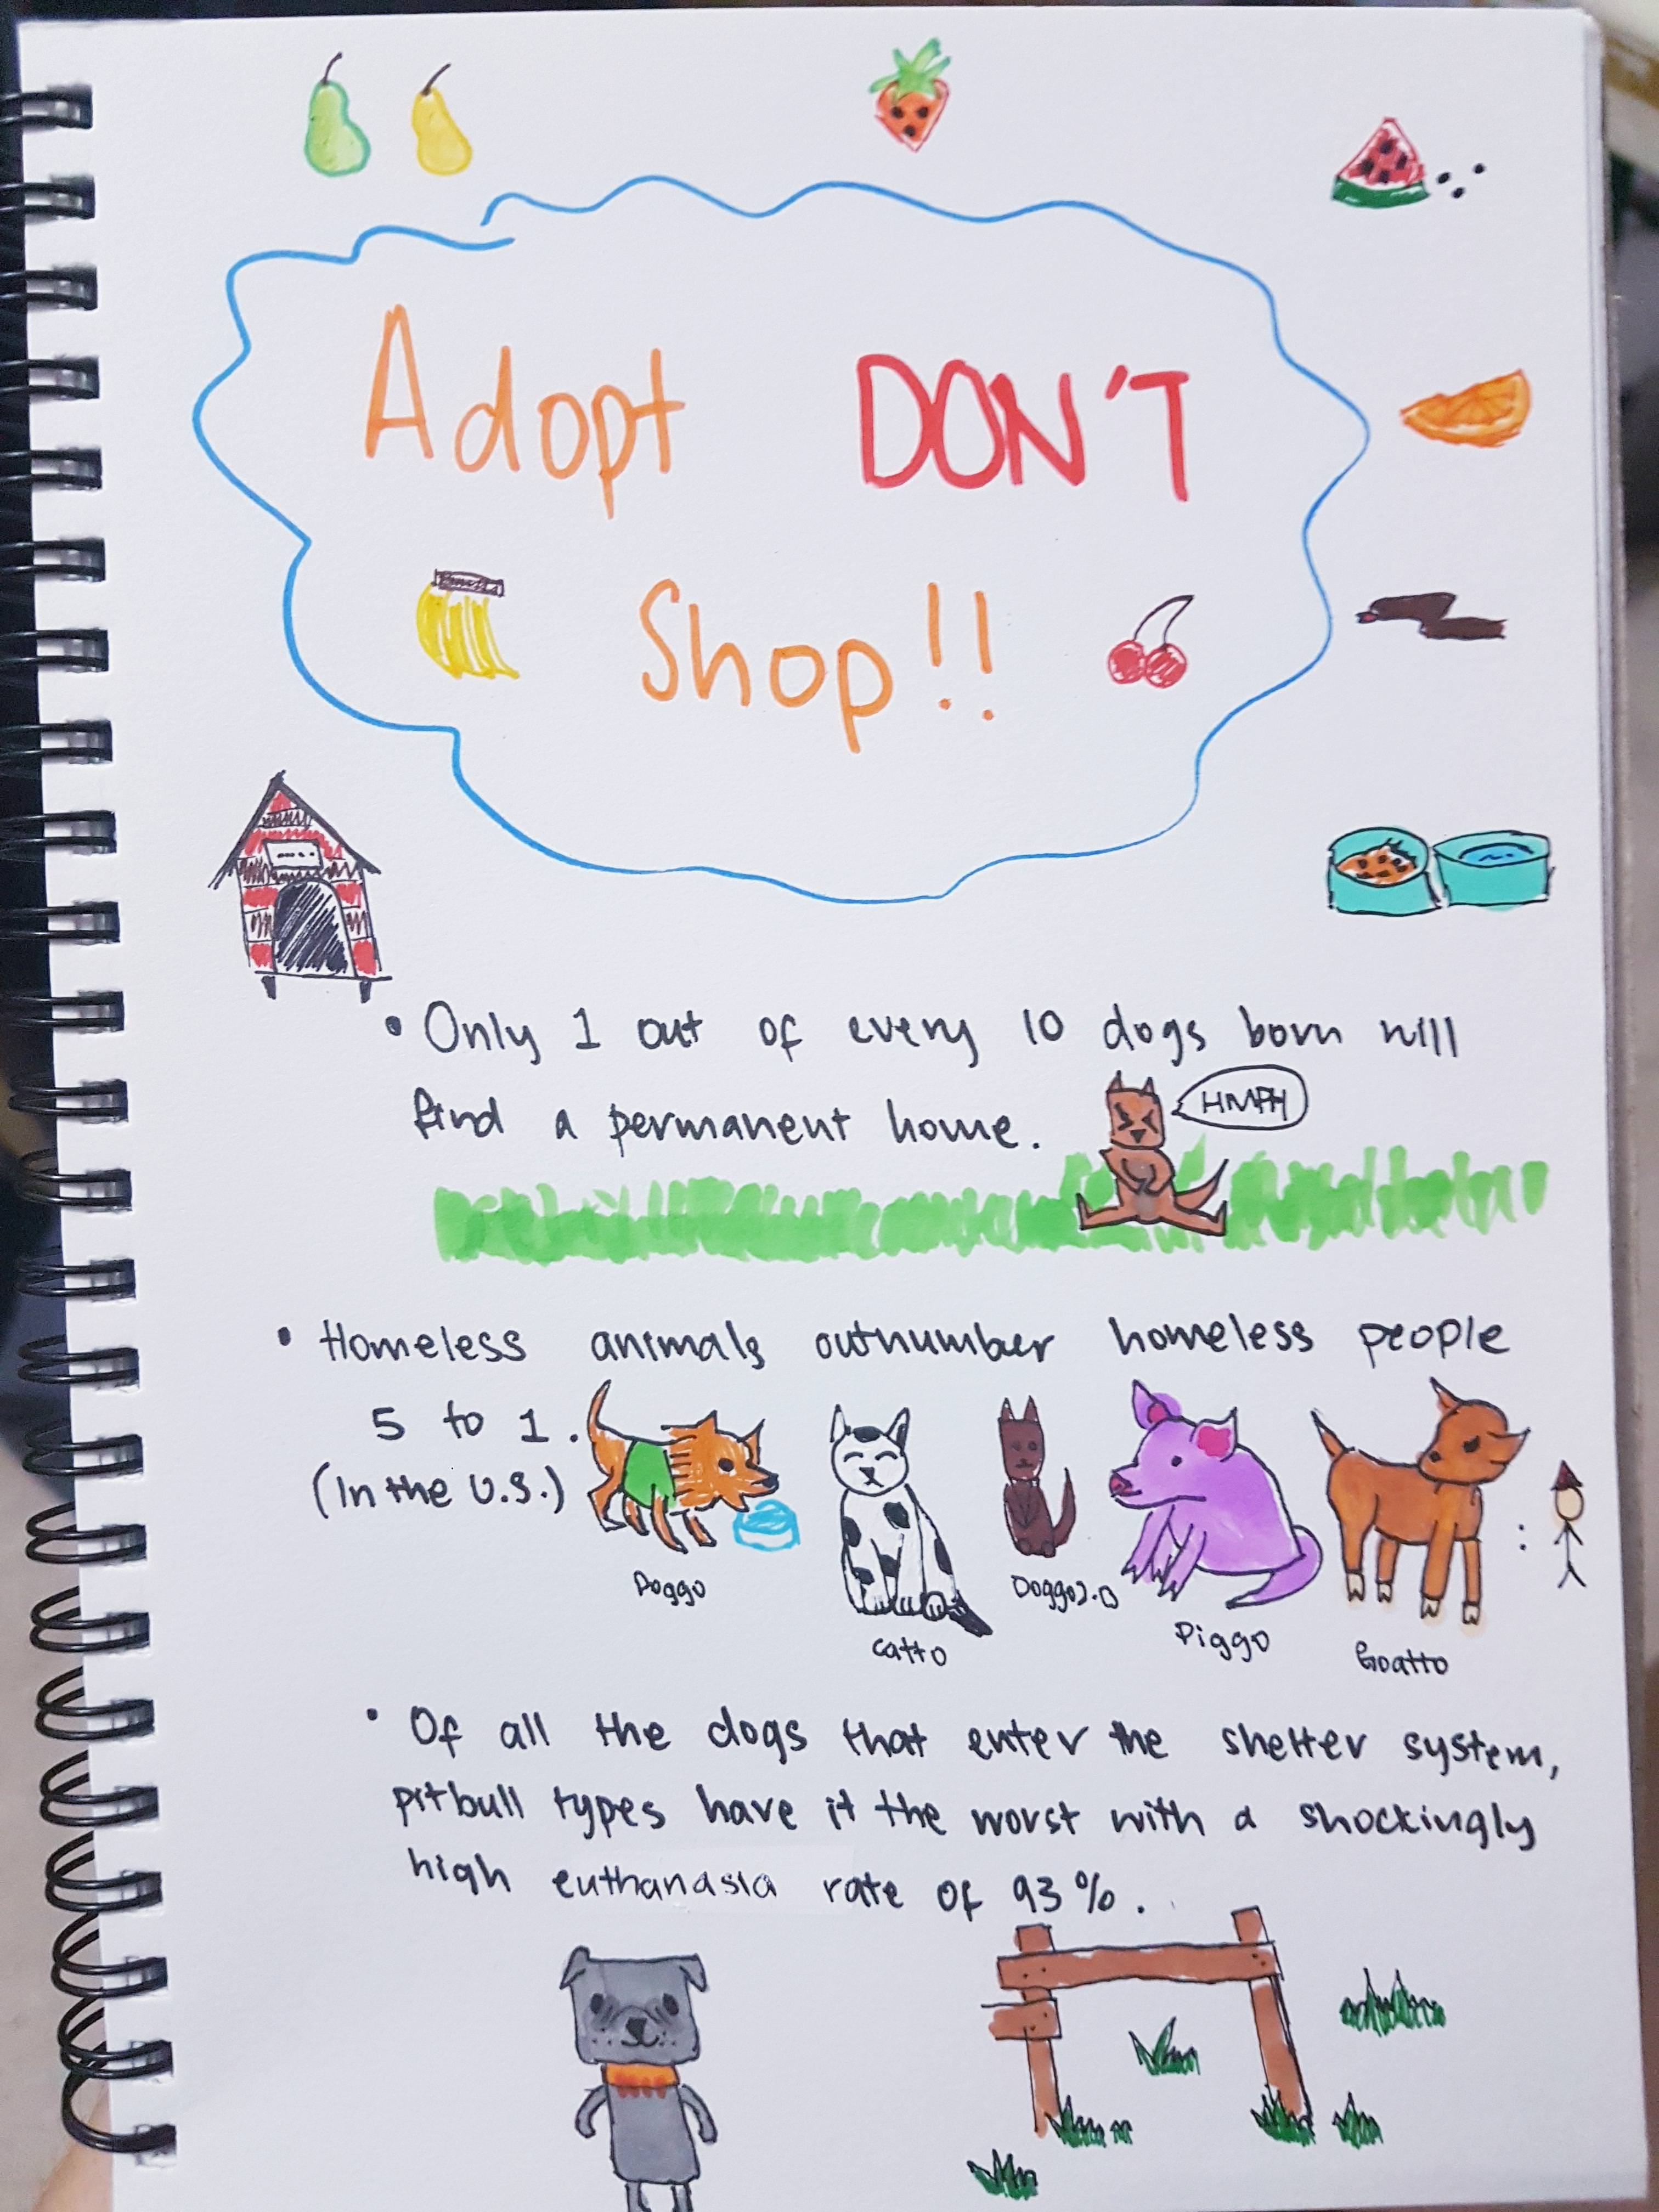 Adopt DON'T
Shop!!
• Only 1 out of every 10 dogs born will
find a permanent home.
HMPH
• Homeless animals outnumber homeless people
5 to 1.
(In the U.S.)
:
Doggo
Catto
Doggo2.0
Piggo
Goatto
• Of all the dogs that enter the shelter system,
pitbull types have it the worst with a shockingly
high euthanasia rate of 93%.